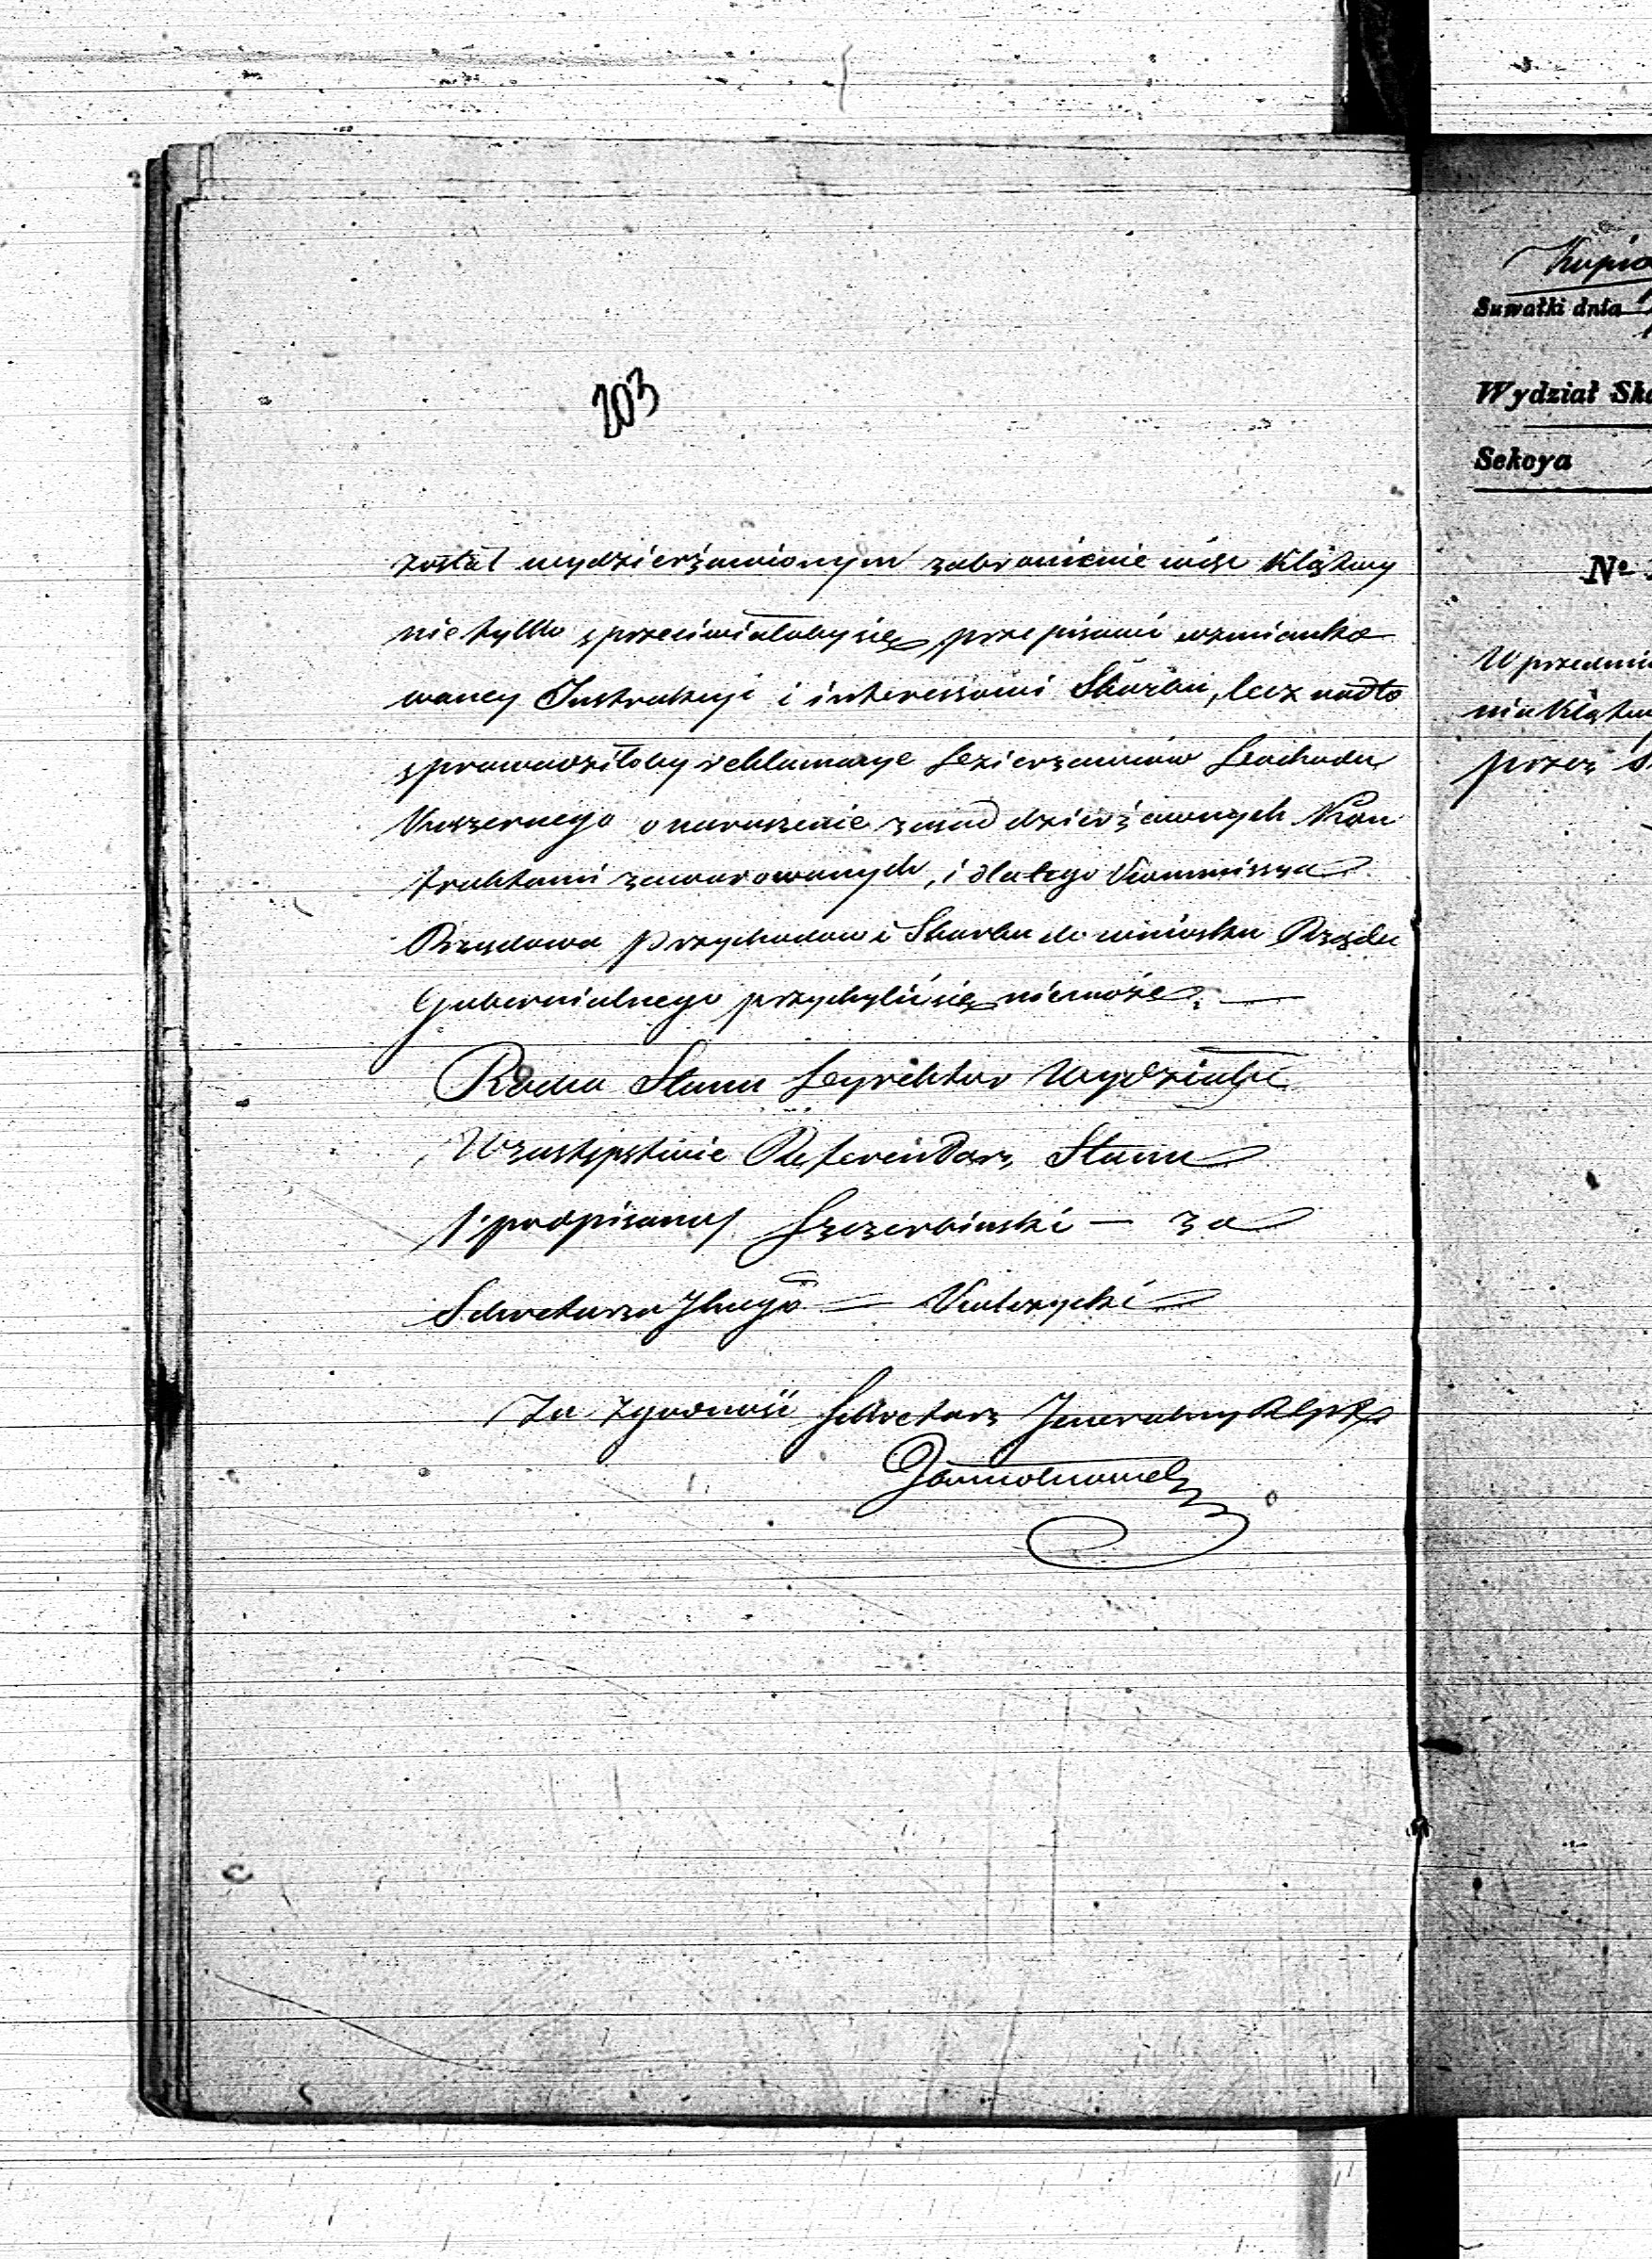 203
został wydzierżawionym zabronienie więc Klątwy
nie tylko sprzeciwiałoby się przepisami wzmianko
waney Instrukcyi i interessami Skarbu, lecz nadto
sprowadziłoby reklamacye Dzierżawców Dochodu
Koszernego o naruszenie zasad dzierżawnych Kon
traktami zawarowanych, i dlatego Kommissya
Rządowa Przychodow i Skarbu do wniosku Rządu
Gubernialnego przychylić się nie może. —
Radca Stanu Dyrektor Wydziału
W zastępstwie Referendarz Stanu
/ podpisany / Szczerbinski — za
Sekretarza Jlnego —
Za Zgodność Sekretarz Jeneralny
Kopia
Suwałki dnia
Wydział
Sekcya
No
W
nia
przez